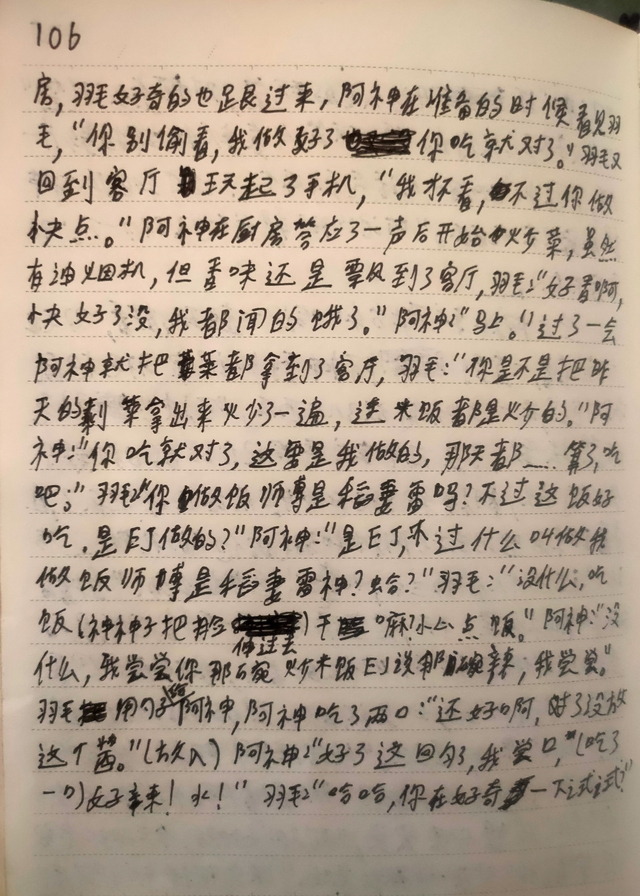 106
房,羽毛好奇的也跟过来,阿神在准备的时候看见羽
毛,“你别偷看,我做好了你吃就对了。”羽毛又
回到客厅玩起了手机,“我不看,不过你做
快点。”阿神在厨房答应了一声后开始炒菜,虽然
有油烟机,但香味还是飘到了客厅,羽毛:“好香啊,
快好了没,我都闻的饿了。”阿神:“马上。”过了一会
阿神就把菜都拿到了客厅,羽毛:“你是不是把昨
天的剩菜拿出来炒了一遍,连米饭都是炒的。”阿
神:“你吃就对了,这要是我做的,那天都……算了,吃
吧。”羽毛:“你做饭师傅是稻妻雷吗?不过这饭好
吃,是EJ做的?”阿神:“是EJ,不过什么叫做我
做饭师傅是稻妻雷神?哈?”羽毛:“没什么,吃
饭(神神子把脸伸过去)干嘛?小心点饭。”阿神:“没
什么,我尝尝你那碗炒米饭EJ说那碗辣,我尝尝。”
羽毛用勺子喂阿神,阿神吃了两口:“还好啊,对了没放
这个酱。”(放入)阿神:“好了这回匀了,我尝口,”(吃了
一口)好辣!水!”羽毛:“哈哈,你在好奇一下试试?